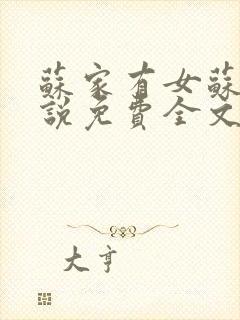 蘇家有女蘇
說免費全文
大亨